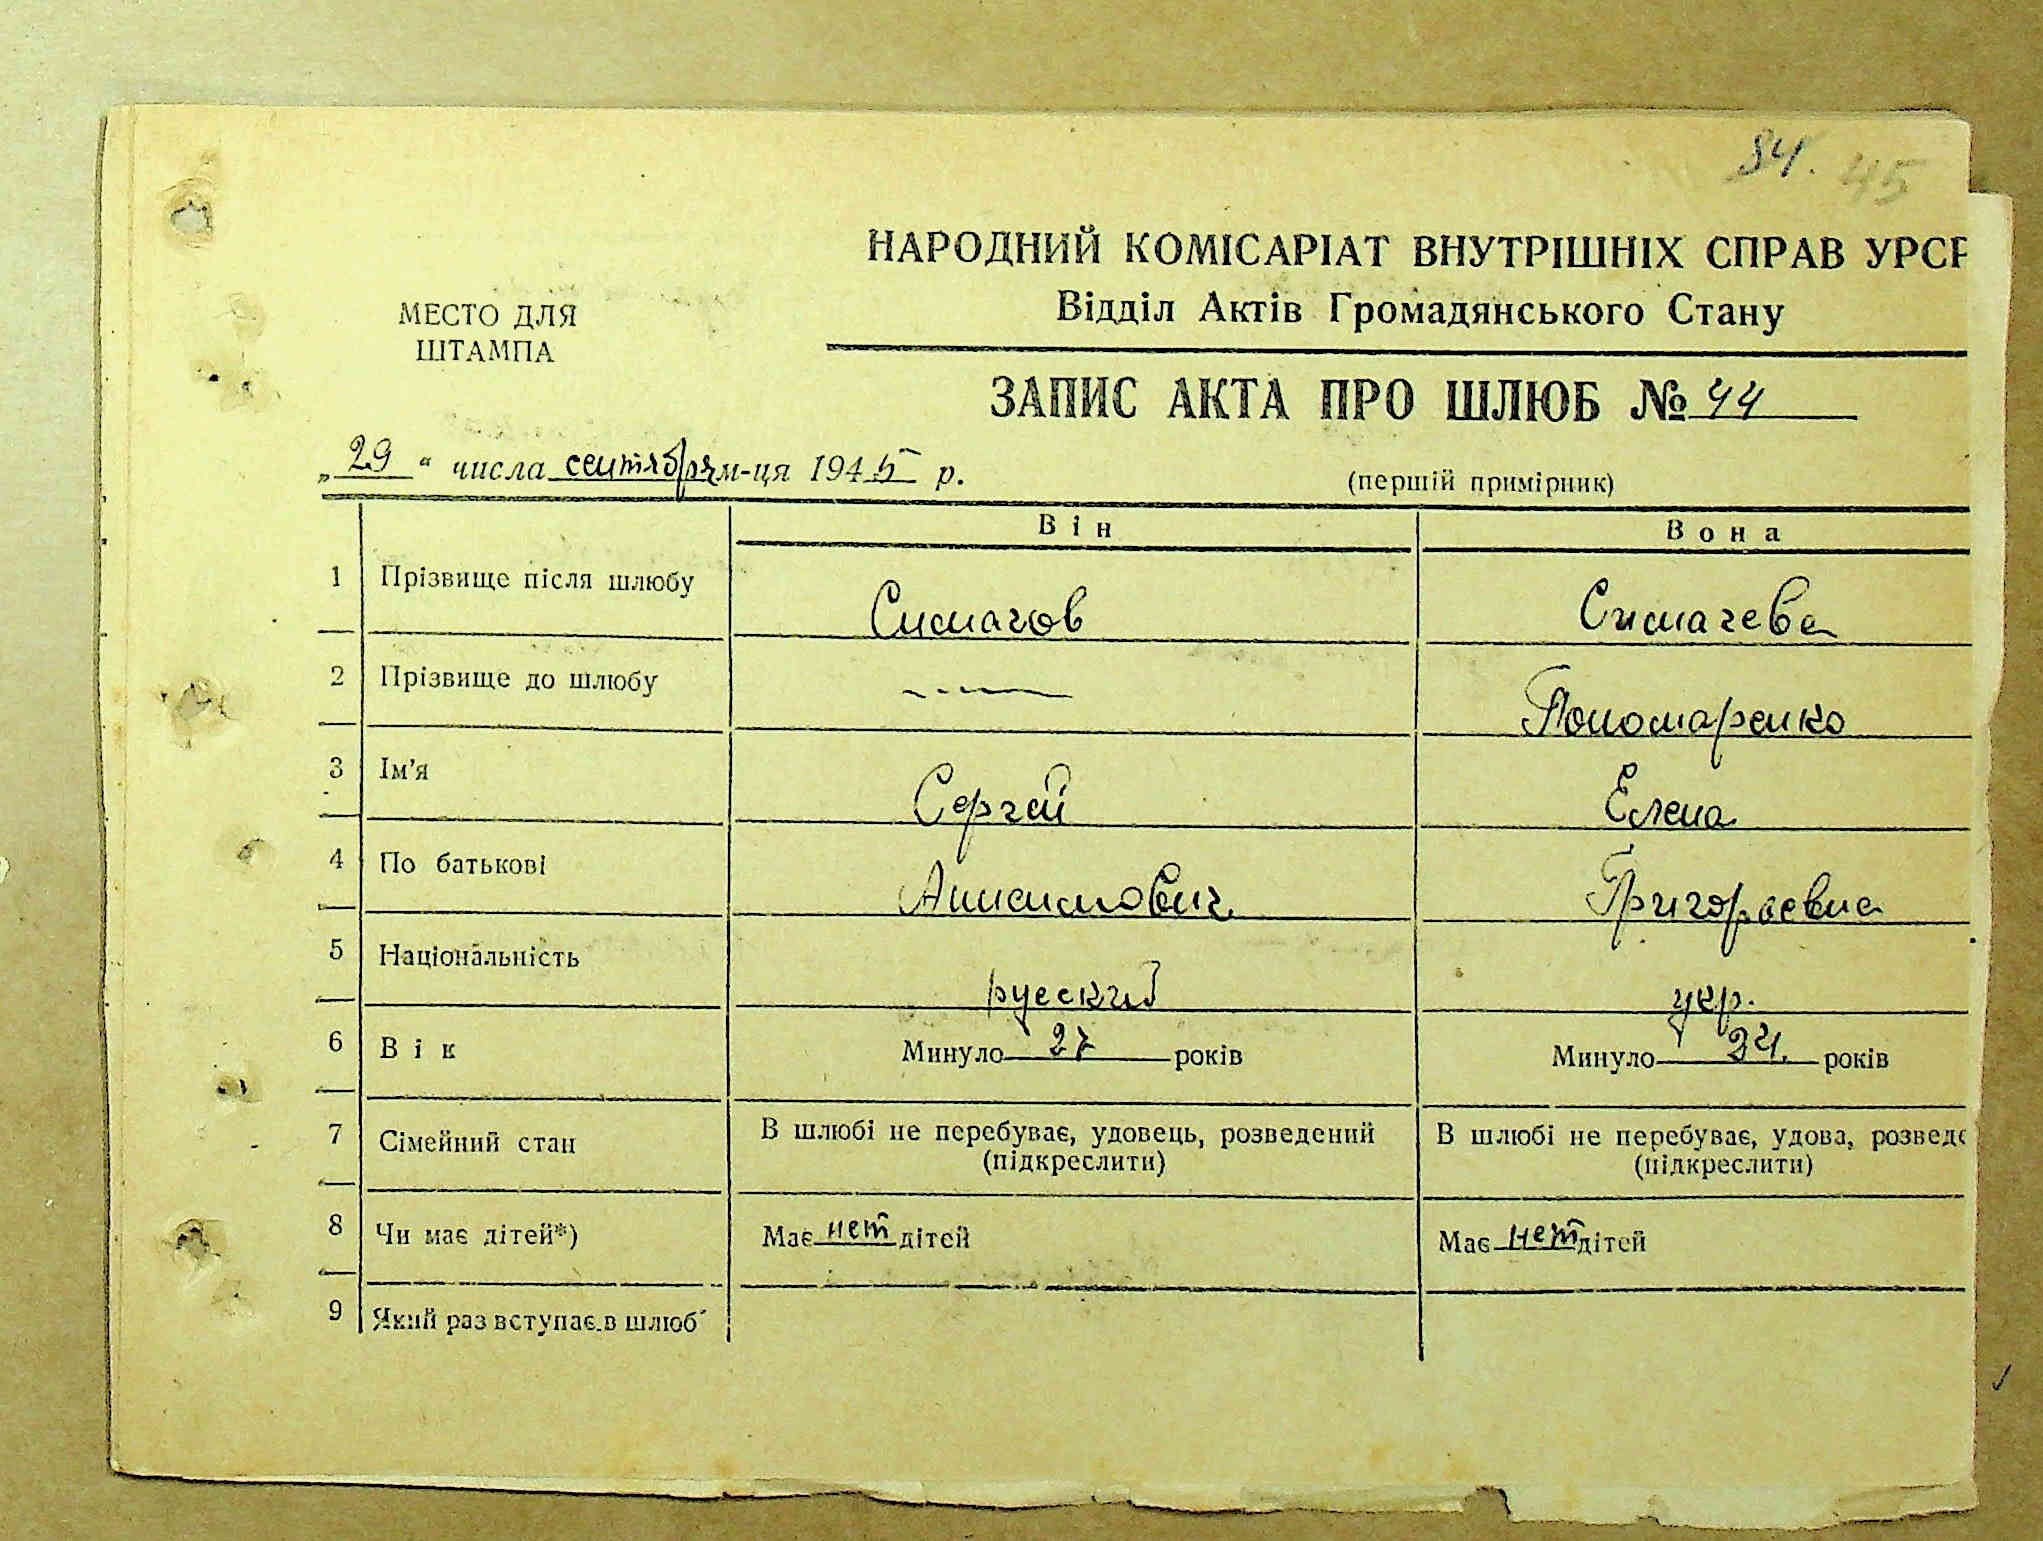 84. 45
НАРОДНИЙ КОМІСАРІАТ ВНУТРІШНІХ СПРАВ УРСР
Відділ Актів Громадянського Стану
МЕСТО ДЛЯ
ШТАМПА
ЗАПИС АКТА ПРО ШЛЮБ № 44
„29“ числа сентября м-ця 1945 р.
(першій примірник)
Він Вона
1 Прізвище після шлюбу Симачов Симачева
2 Прізвище до шлюбу -- Пономаренко
3 Ім'я Сергей Елена
4 По батькові Анисимович Григорьевна
5 Національність русский укр.
6 Вік Минуло 27 років Минуло 24 років
7 Сімейний стан В шлюбі не перебуває, удовець, розведений В шлюбі не перебуває, удова, розведе
(підкреслити) (підкреслити)
8 Чи має дітей*) Має нет дітей Має нет дітей
9 Який раз вступає в шлюб